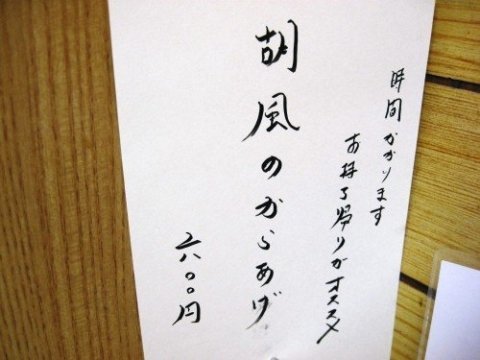 時間かかります
お持ち帰りがオススメ
胡風のからあげ
六〇〇円